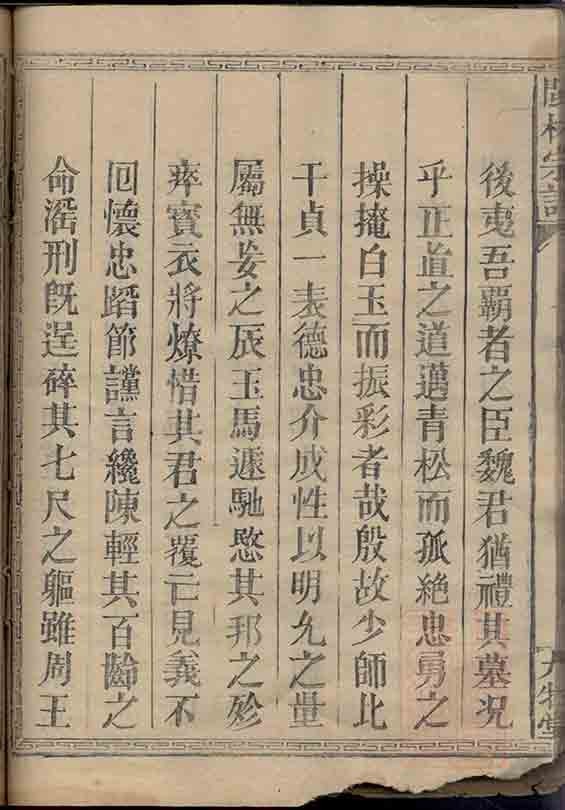 後夷吾霸者之臣魏君猶禮其墓况
乎正直之道邁青松而孤絶忠勇之
操掩白玉而振彩者哉殷故少師比
干貞一表德忠介成性以明允之量
屬無妄之辰玉馬遽馳愍其邦之殄
瘁寶衣將燎惜其君之覆亡見義不
回懷忠蹈節讜言纔陳輕其百齡之
命滛刑旣逞碎其七尺之軀雖周王
林宗譜